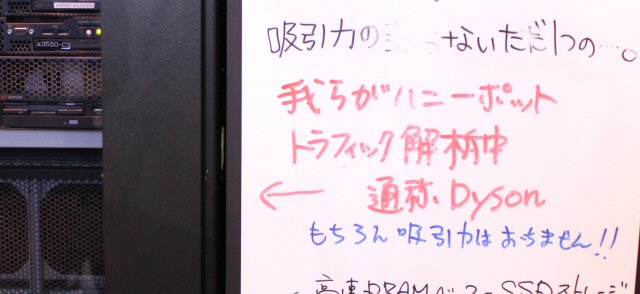 x3550-C3
吸引力の ないただ1つの…。
我らがハニーポット
トラフィック解析中
← 通称、Dyson
もちろん吸引力はおちません!!
・高速DRAMベース-SSDストレージ